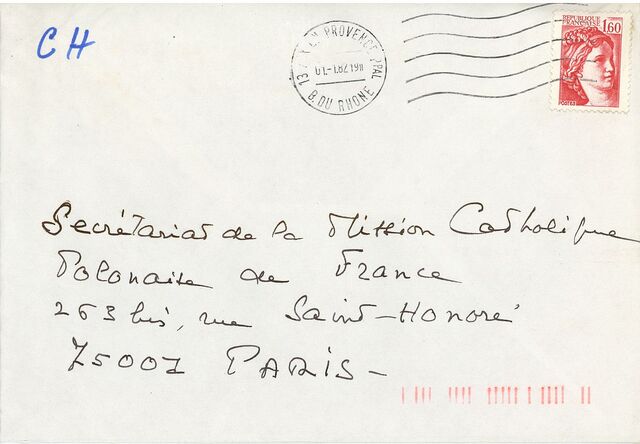 CH
13 AIX EN PROVENCE PPAL
B. DU RHONE
RÉPUBLIQUE
FRANÇAISE
1,60
POSTES
Secrétariat de la Mission Catholique
Polonaise de France
263 bis, rue Saint-Honoré
75001 PARIS -